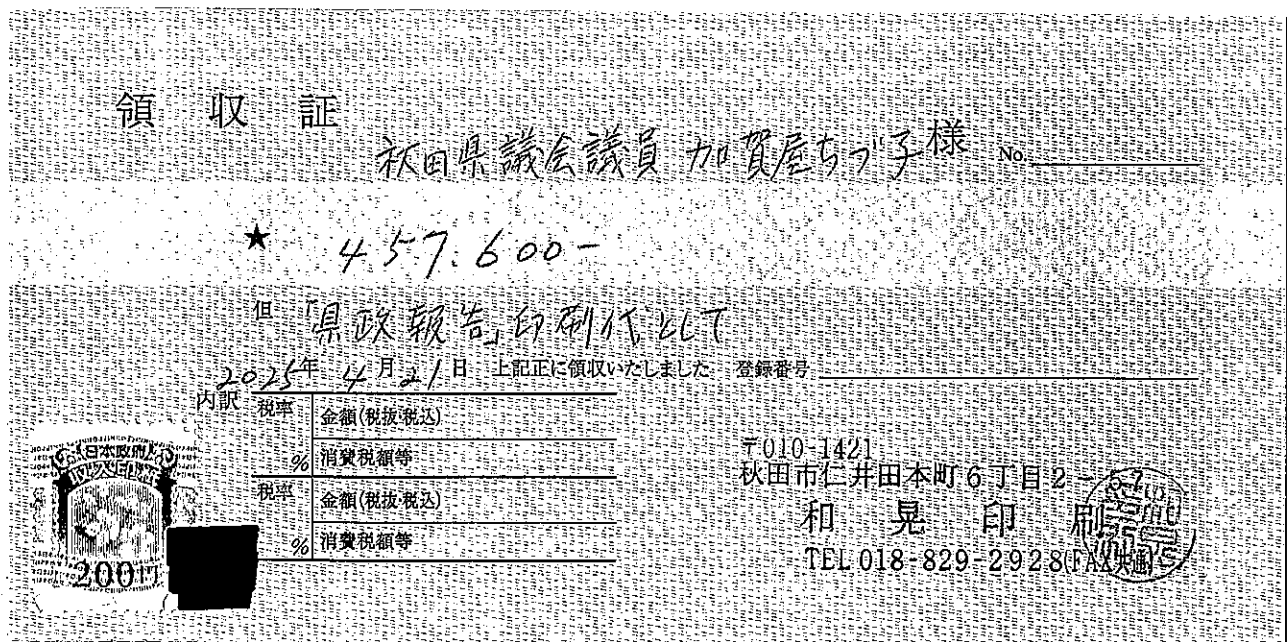 領収証
秋田県議会議員 加賀屋ちづ子様 No.
★ 457.600-
但 「県政報告」印刷代として
2025年 4月 21日 上記正に領収いたしました 登録番号
内訳
税率 金額(税抜・税込)
% 消費税額等
税率 金額(税抜・税込)
% 消費税額等
日本政府
収入印紙
200円
〒010-1421
秋田市仁井田本町6丁目2-57
和晃印刷
TEL 018-829-2928(FAX共通)